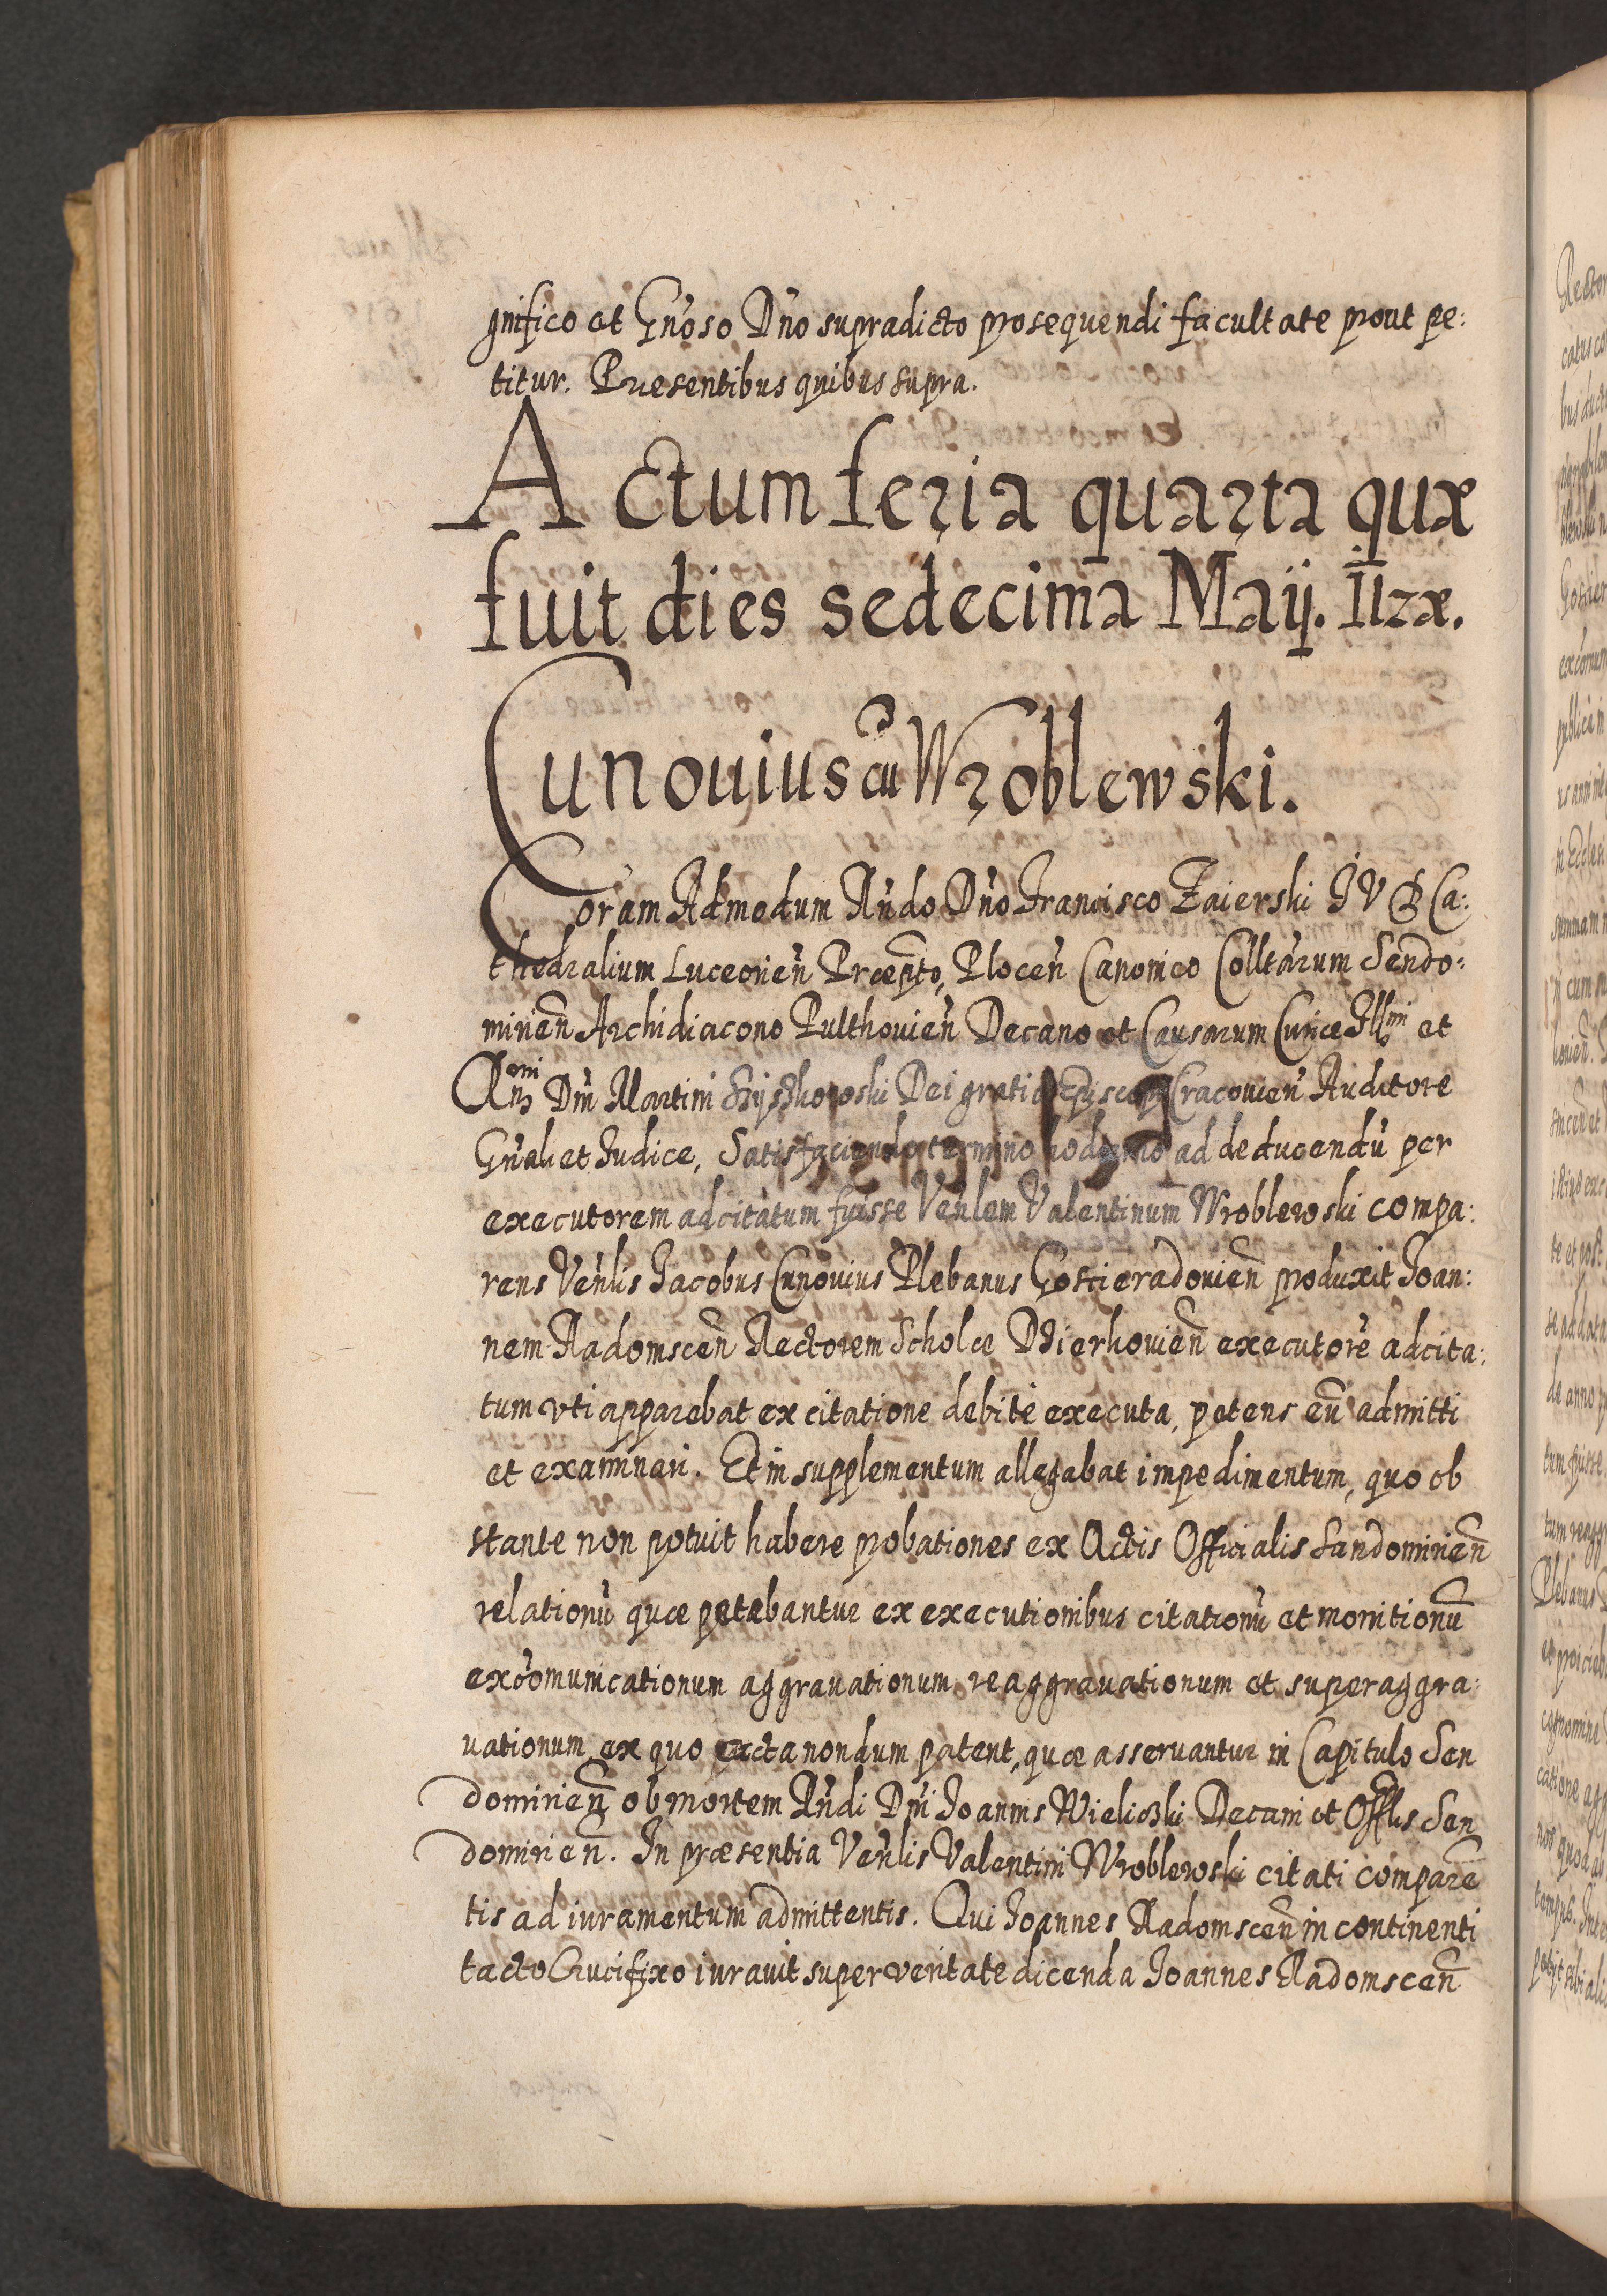 gnifico et Gn̄oso Dn̄o supradicto prosequendi facultate prout pe:
titur. Presentibus quibus supra.
Actum feria quarta quæ
fuit dies sedecima Maij. Ilzæ.
Cunouius cū Wroblewski.
Coram Admodum Rn̄do Dn̄o Francisco Zaierski I V D Ca:
thedralium Luceorien̄ Præpt̄o, Plocen̄ Canonico Colltārum Sendo:
mirien̄ Archidiacono Pulthouien̄ Decano et Causarum Curiæ Illmi et
Dni Martini Szyszkowski Dei gratia Episcopi Cracouien̄ Auditore
Gn̄ali et Iudice, Satisfaciendo termino hodierno ad deducendū per
executorem adcitatum fuisse Ven̄lem Valentinum Wroblewski compa:
rens Ven̄lis Jacobus Cunouius Plebanus Gosciradouien̄ produxit Joan:
nem Radomscen̄ Rectorem Scholæ Dzierkouien̄ executorē adcita:
tum vti apparebat ex citatione debitè executa, petens eū admitti
et examinari. Et in supplementum allegabat impedimentum, quo ob
stante non potuit habere probationes ex Actis Officialis Sandomirien̄
relationū quæ petebantur ex executionibus citationū et monitionū
excōmunicationum aggrauationum, reaggrauationum et superaggra:
uationum ex quo acta nondum patent, quæ asseruantur in Capitulo Sen
domirien̄ ob mortem Rn̄di Dn̄i Joannis Wieliczki Decani et Offlis San
domirien̄. In præsentia Ven̄lis Valentini Wroblewski citati comparē
tis ad iuramentum admittentis. Qui Joannes Radomscen̄ in continenti
tacto Crucifixo iurauit super veritate dicenda Joannes Radomscen̄